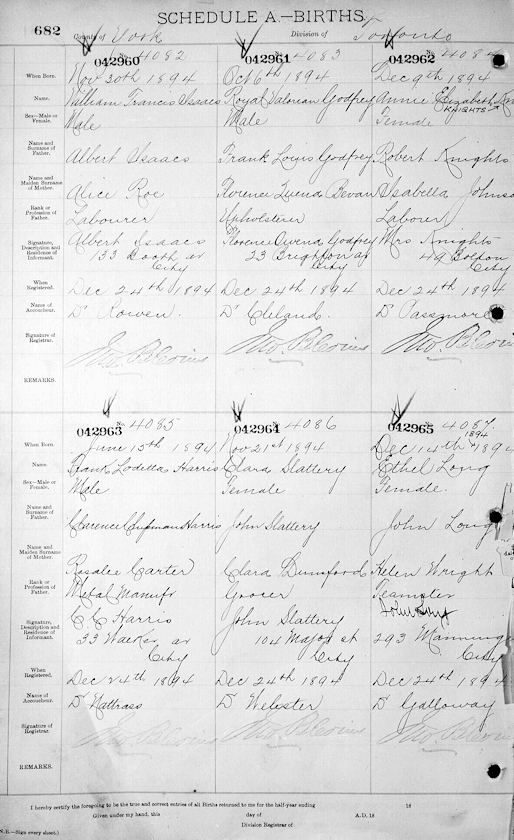 SCHEDULE A.—BIRTHS.
682
County of York
Division of Toronto
042960 No. 4082
042961 No. 4083
042962 No. 408
When Born. Nov 30th 1894 Oct 6th 1894 Dec 9th 1894
Name. William Francis Isaacs Royal Valorian Godfrey Annie Elizabeth
KNIGHTS
Sex—Male or Female. Male Male Female
Name and Surname of Father. Albert Isaacs Frank Louis Godfrey Robert Knights
Name and Maiden Surname of Mother. Alice Roe Florence Bevan Isabella
Rank or Profession of Father. Labourer Upholsterer Labourer
Signature, Description and Residence of Informant. Albert Isaacs Florence Godfrey Mrs Knights
133 Booth av 23 Brighton av 49 Bolton
City City City
When Registered. Dec 24th 1894 Dec 24th 1894 Dec 24th 1894
Name of Accoucheur. Dr Rowen. Dr Cleland. Dr Passmore
Signature of Registrar.
REMARKS.
042963 No. 4085
042964 No. 4086
042965 No. 4087
When Born. June 15th 1894 Nov 21st 1894 Dec 14th 1894
1894
Name. Frank Harris Clara Slattery Ethel Long
Sex—Male or Female. Male Female Female.
Name and Surname of Father. Clarence Chapman Harris John Slattery John Long
Name and Maiden Surname of Mother. Rosalie Carter Clara Dunsford Helen Wright
Rank or Profession of Father. Metal Manufr Grocer Teamster
Signature, Description and Residence of Informant. C C Harris John Slattery John Long
33 Walker av 104 Major st 293 Manning
City City City
When Registered. Dec 24th 1894 Dec 24th 1894 Dec 24th 1894
Name of Accoucheur. Dr Nattrass Dr Webster Dr Galloway
Signature of Registrar.
REMARKS.
I hereby certify the foregoing to be the true and correct entries of all Births returned to me for the half-year ending 18
Given under my hand, this day of A.D. 18
Division Registrar of
N.B.—Sign every sheet.)